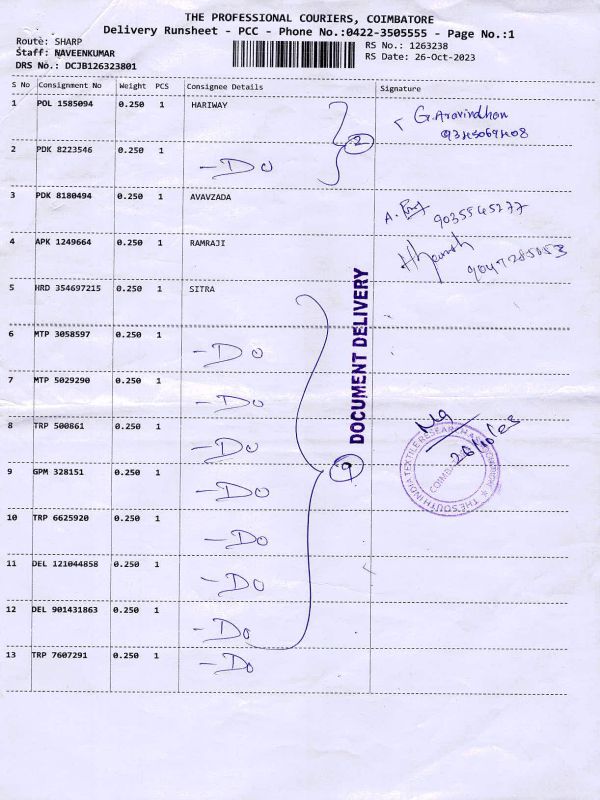 THE PROFESSIONAL COURIERS, COIMBATORE
Delivery Runsheet - PCC - Phone No.:0422-3505555 - Page No.:1
Route: SHARP
RS No.: 1263238
Staff: NAVEENKUMAR
RS Date: 26-Oct-2023
DRS No.: DCJB126323801
S No Consignment No Weight PCS Consignee Details Signature
1 POL 1585094 0.250 1 HARIWAY G. Aravindhan
2
2 PDK 8223546 0.250 1 -Do
3 PDK 8180494 0.250 1 AVAVZADA 9035545277
4 APK 1249664 0.250 1 RAMRAJI
5 HRD 354697215 0.250 1 SITRA
DOCUMENT DELIVERY
6 MTP 3058597 0.250 1 -Do
7 MTP 5029290 0.250 1 -Do
8 TRP 500861 0.250 1 -Do
26/10/23
THE SOUTH INDIA TEXTILE RESEARCH ASSOCIATION
9
9 GPM 328151 0.250 1 -Do
10 TRP 6625920 0.250 1 -Do
11 DEL 121044858 0.250 1 -Do
12 DEL 901431863 0.250 1 -Do
13 TRP 7607291 0.250 1 -Do